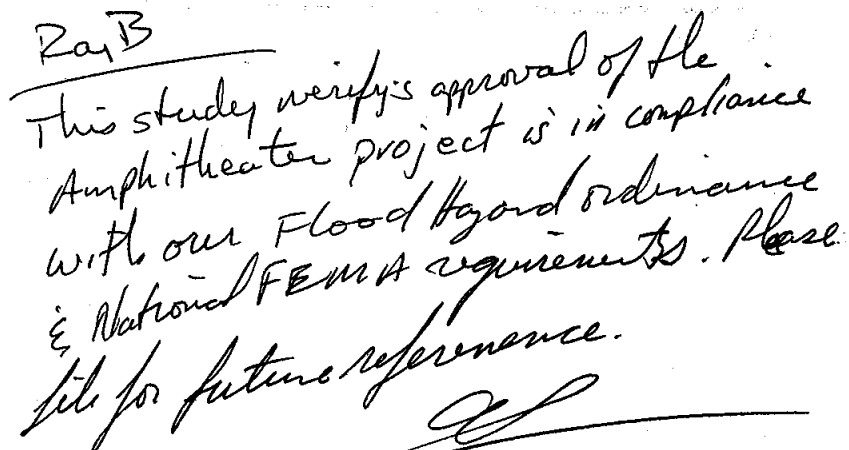 Ray B
This study verifys approval of the
Amphitheater project is in compliance
with our Flood Hazard ordinance
& National FEMA requirements. Please
file for future referenence.